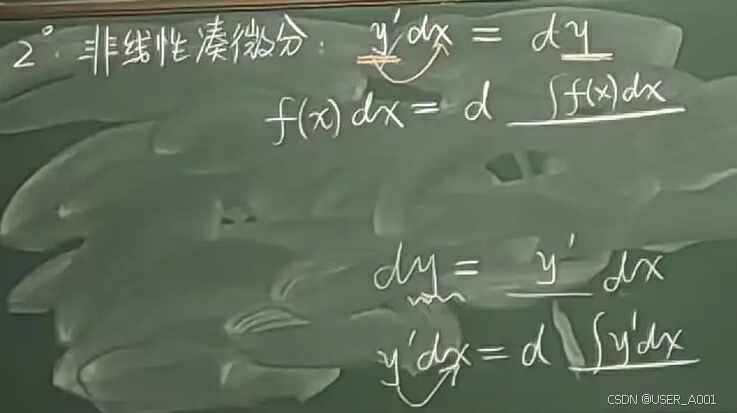 2°. 非线性凑微分: y'dx = dy
f(x)dx = d ∫f(x)dx
dy = y' dx
y'dx = d ∫y'dx
CSDN @USER_A001